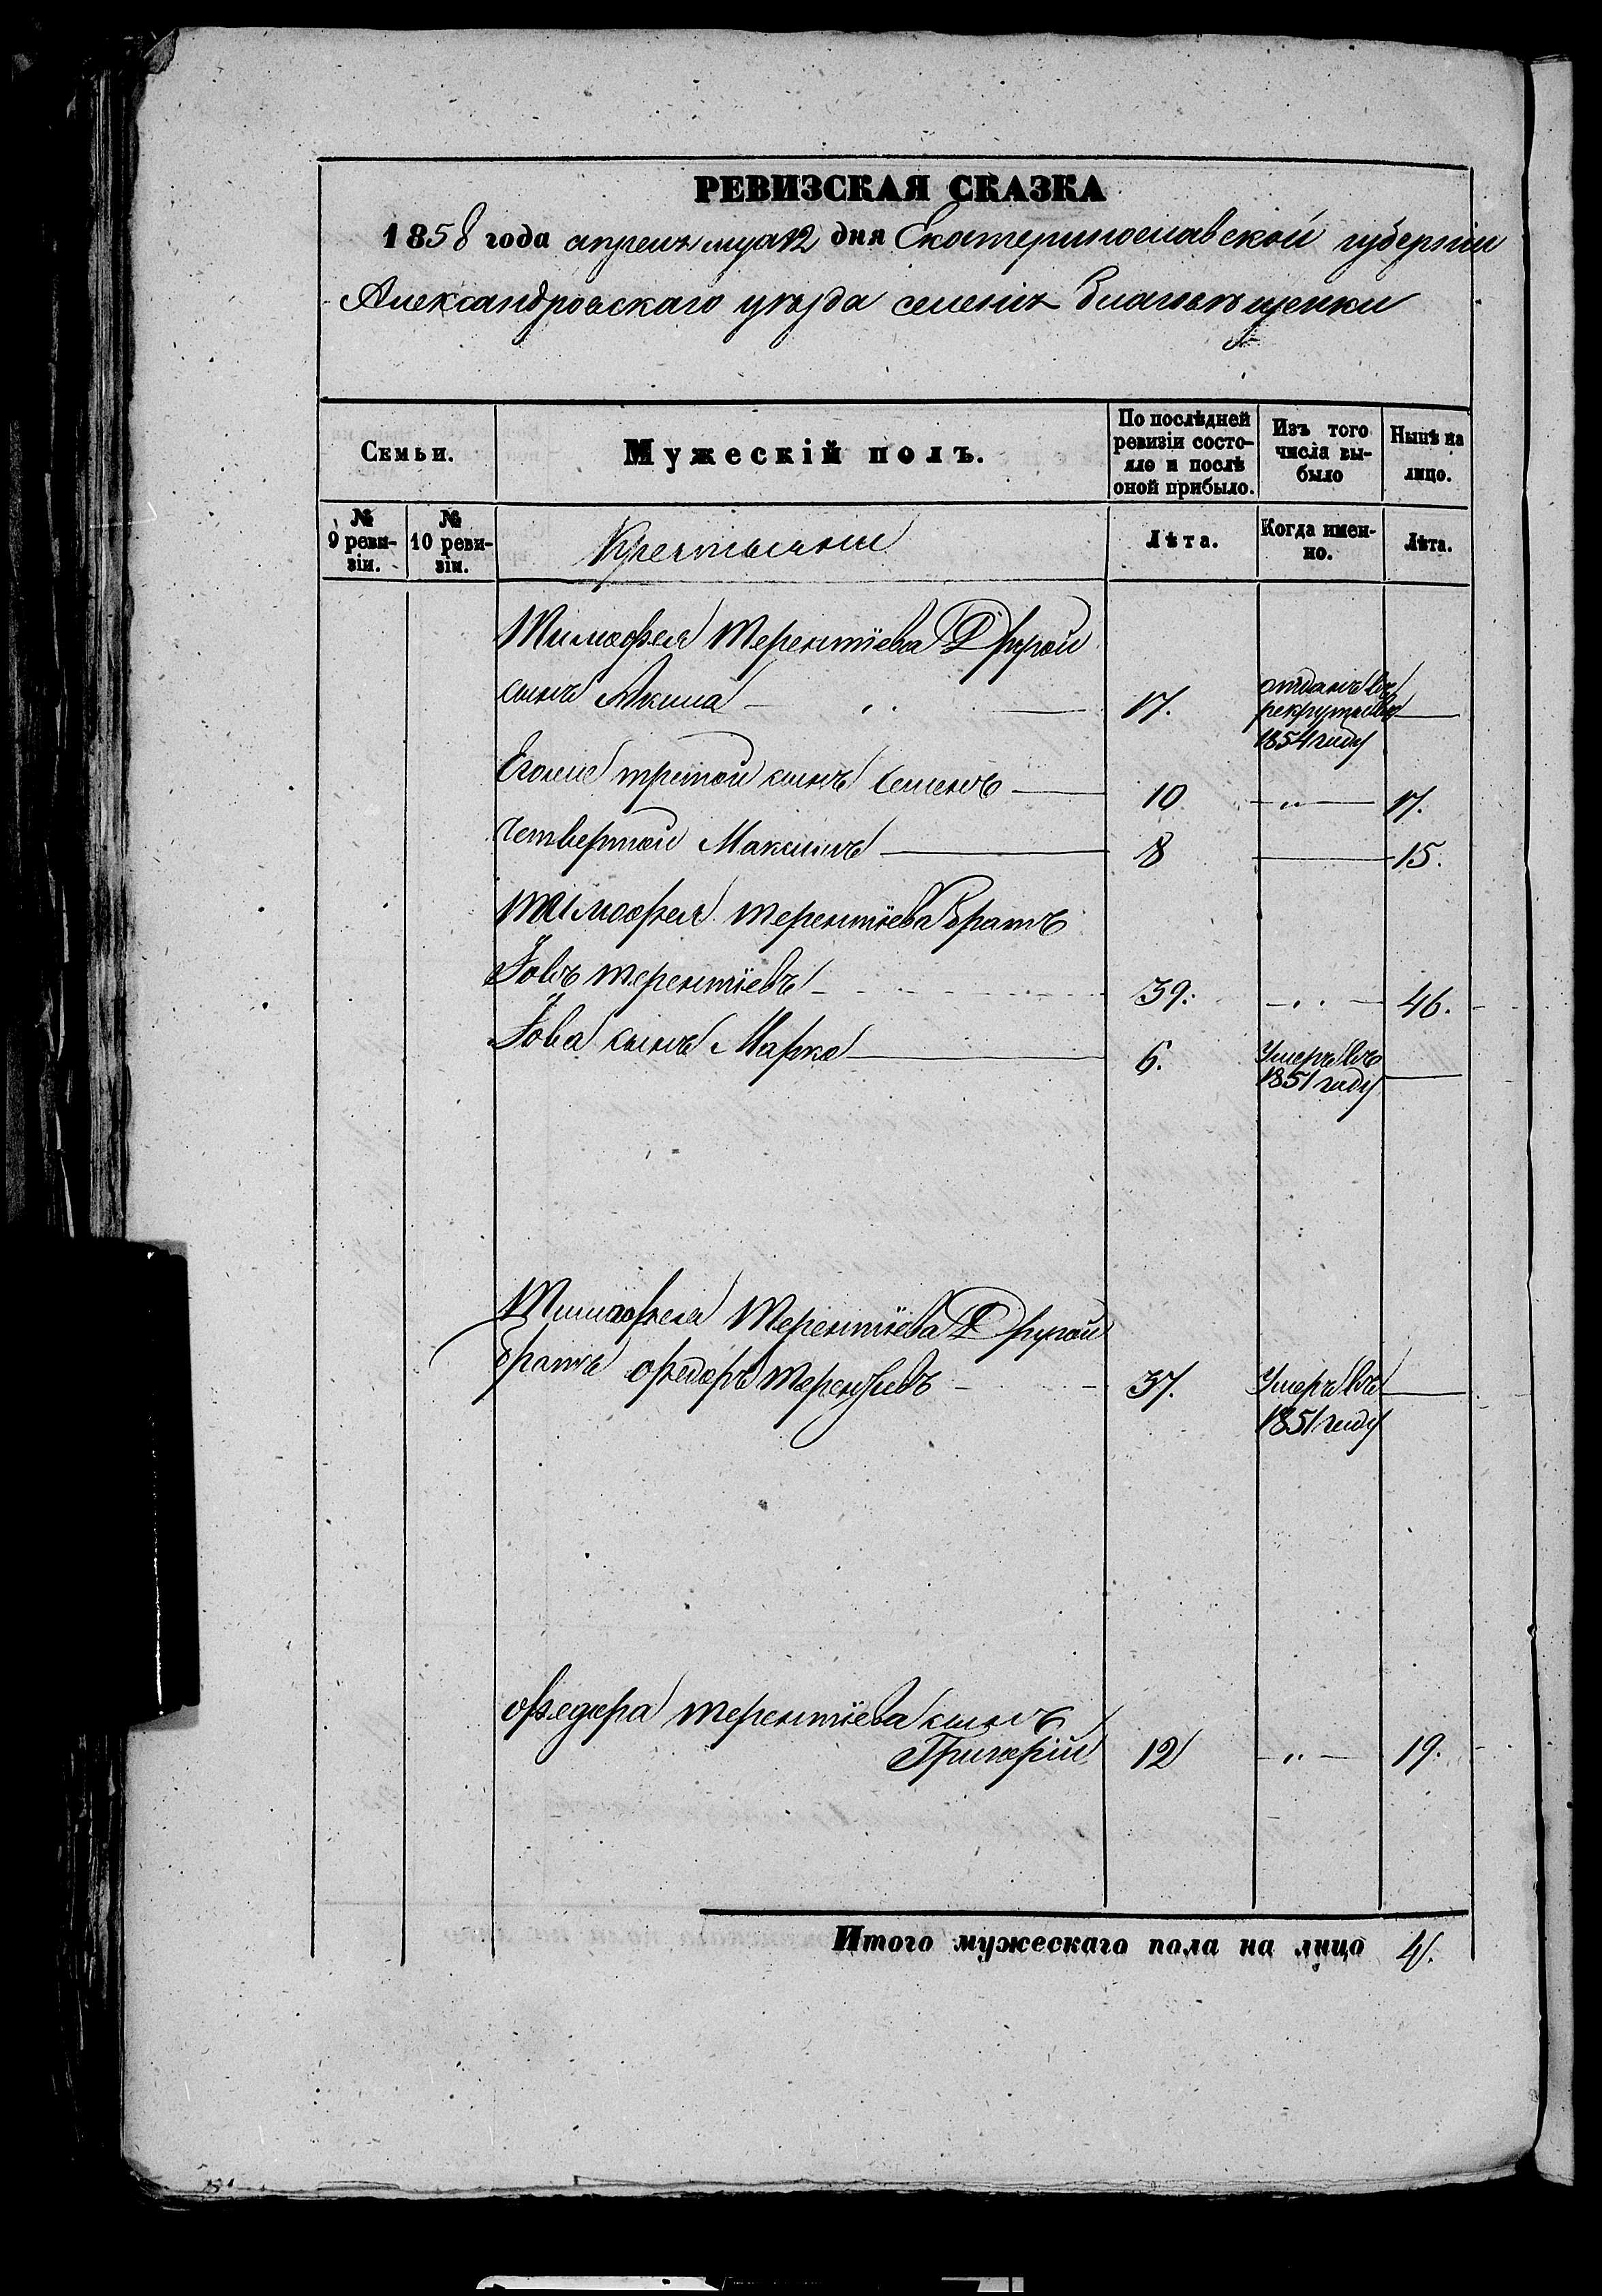 РЕВИЗСКАЯ СКАЗКА
1858 года апреля мца 12 дня Екатеринославской губерніи
Александровскаго уѣзда селенія Благовѣщенки
Семьи.
Мужескій полъ.
По послѣдней ревизіи состо-
яло и послѣ
оной прибыло.
Изъ того
числа вы-
было
Нынѣ на
лицо.
№ 9 реви-
зіи.
№ 10 реви-
зіи.
Крестьяни
Лѣта.
Когда имен-
но.
Лѣта.
Тимофея Терентіева Другой
сынъ Акима 17. отданъ въ
рекруты въ
1854 году
Его третой сынъ Семенъ 10 17.
четвертой Максимъ 8 15.
Тимофея терентіева братъ
Іовъ терентіевъ 39. 46.
Іова сынъ Марко 6. Умеръ въ
1851 году
Тимофея Терентіева Другой
братъ Федоръ терентьевъ 37. Умеръ въ
1851 году
Федора терентіева сынъ
Григорій 12 19.
Итого мужескаго пола на лицо 4.